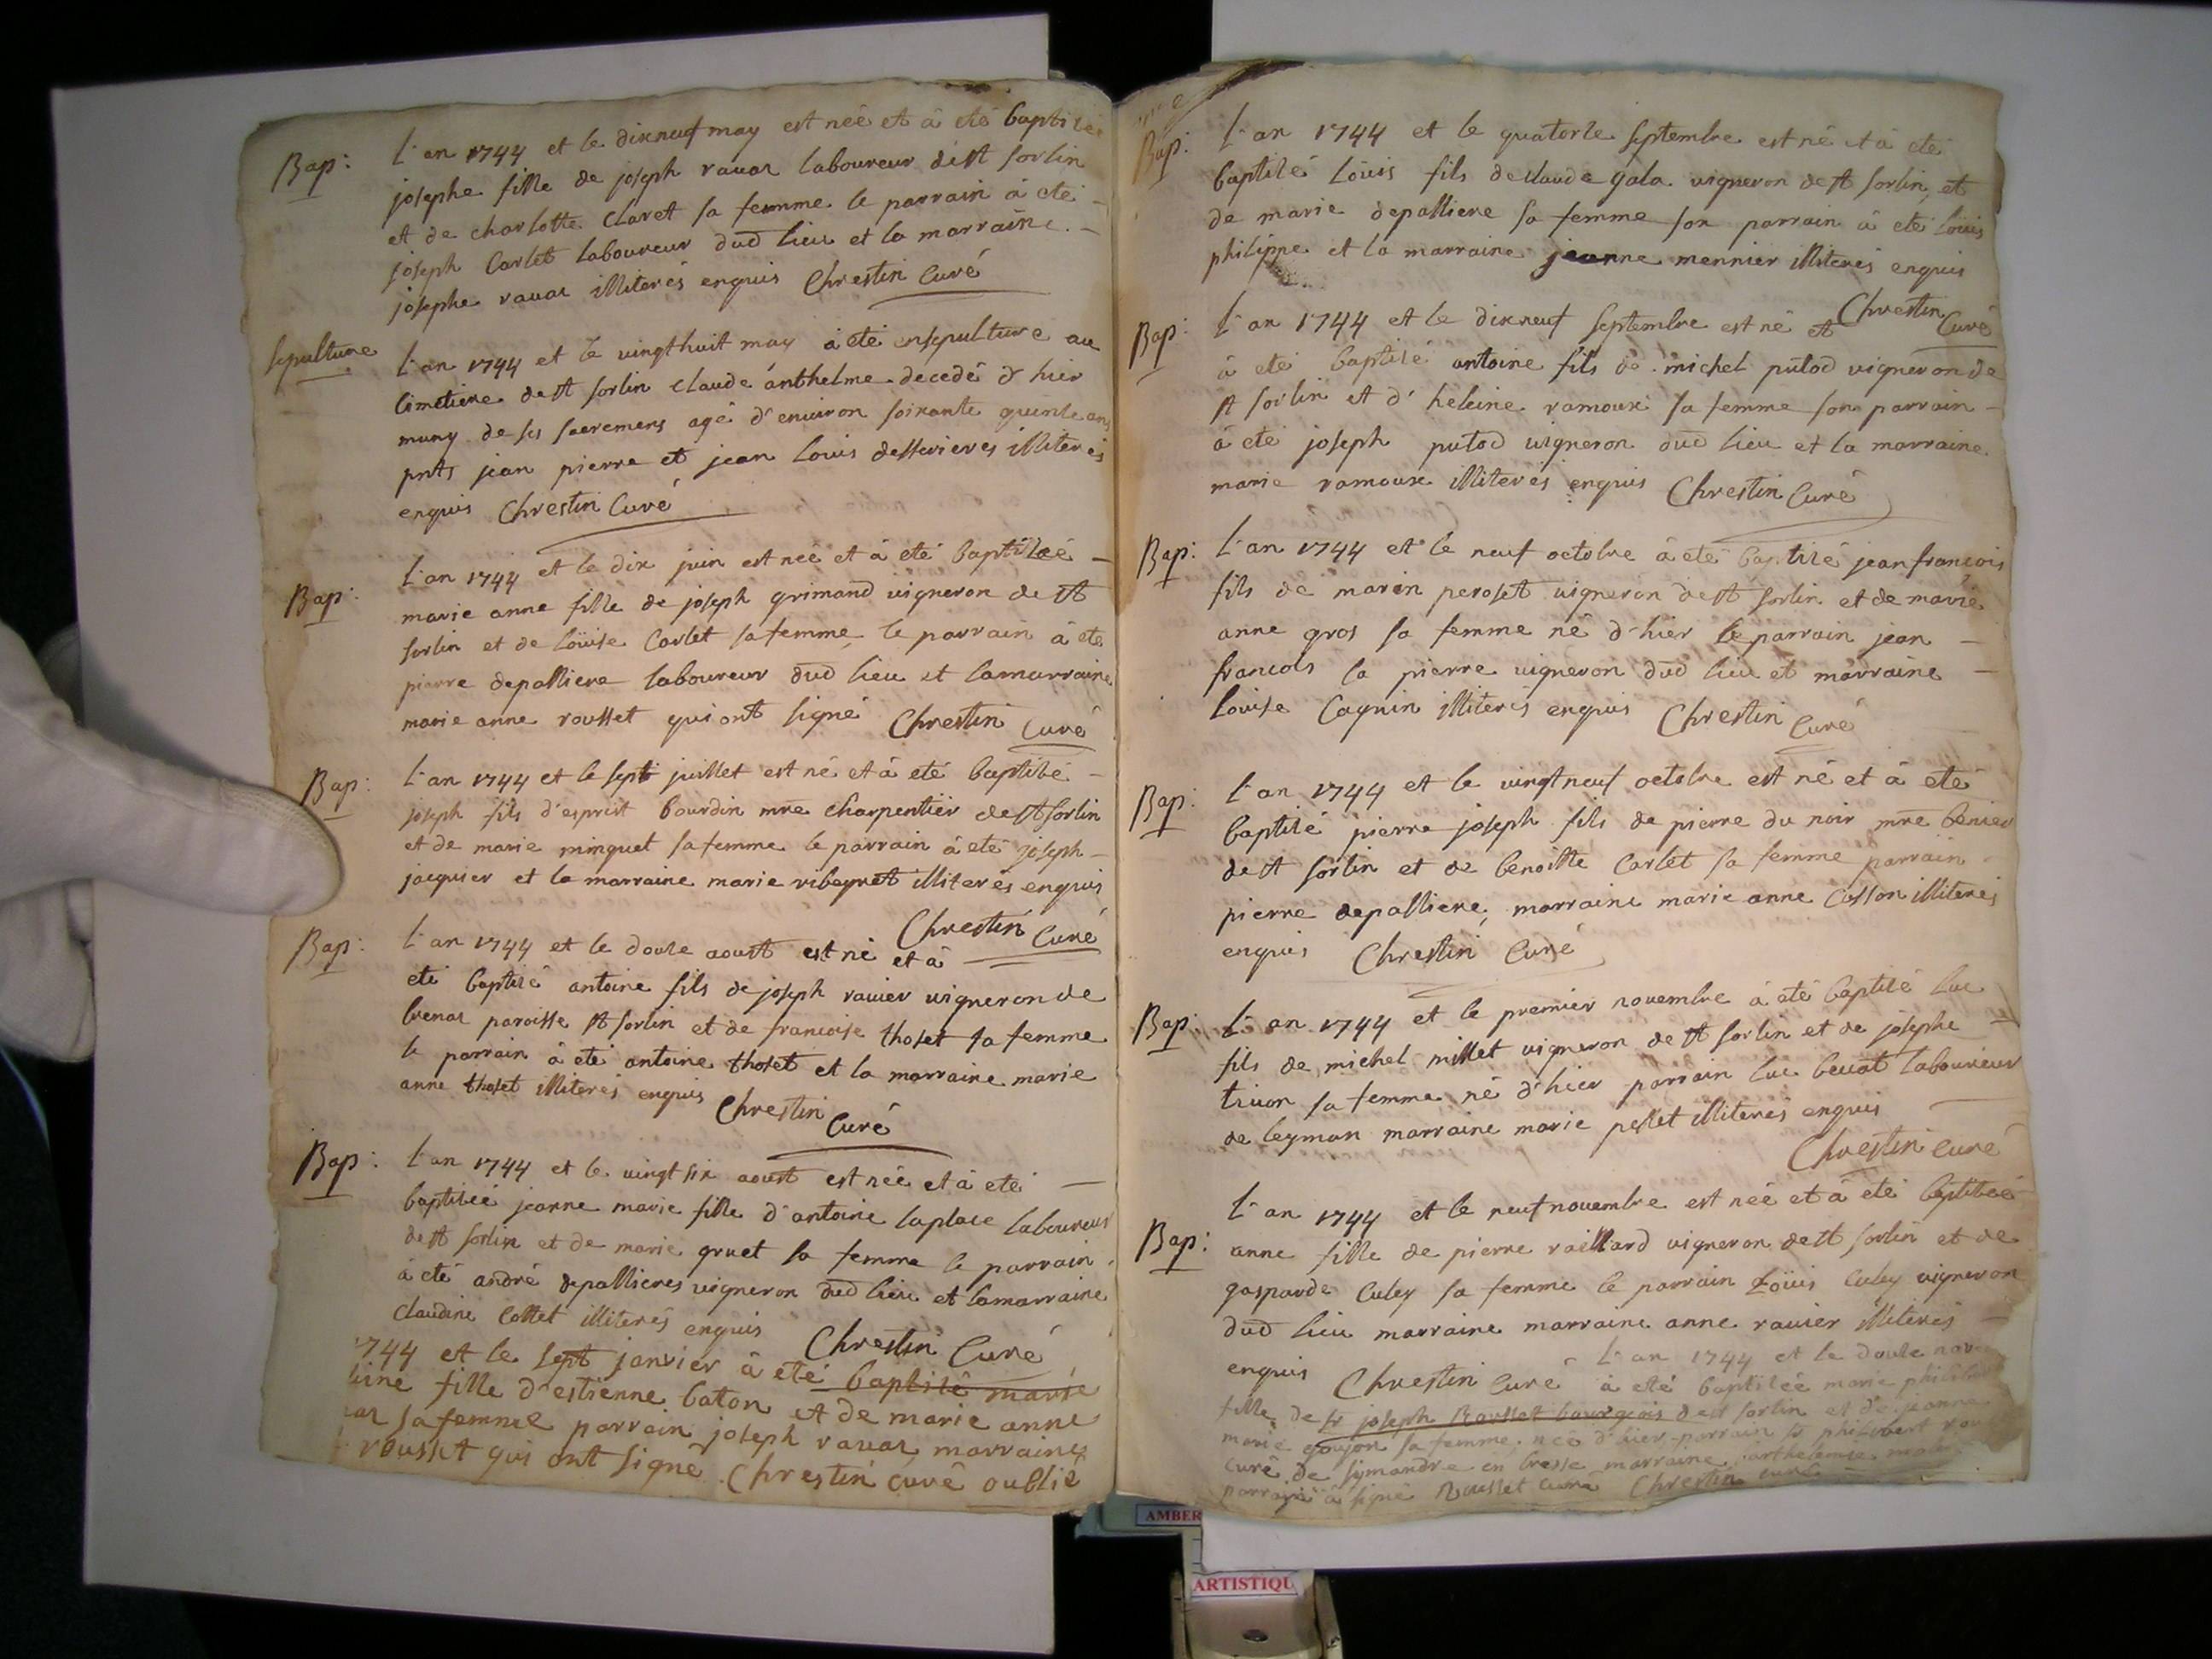 Bap: L'an 1744 et le dixneuf may est née et à eté baptisée
josephe fille de joseph ravat laboureur de st sorlin
et de charlotte claret sa femme le parrain à eté
joseph carlet laboureur dud lieu et la marraine
josephe ravat illiterés enquis Chrestin Curé
sepulture L'an 1744 et le vingthuit may à eté ensepulturé au
Cimetiere de st sorlin claude anthelme decedé d'hier
muny de ses sacremens agé d'environ soixante quinze ans
pnts jean pierre et jean louis desservieres illiterés
enquis Chrestin Curé
Bap: L'an 1744 et le dix juin est née et à eté baptisée
marie anne fille de joseph grimand vigneron de st
sorlin et de loüise carlet sa femme, le parrain à eté
pierre depalliere laboureur dud lieu et la marraine
marie anne rousset qui ont signé Chrestin Curé
Bap: L'an 1744 et le sept juillet est né et à eté baptisé
joseph fils d'esprit bourdin mre charpentier de st sorlin
et de marie minguet sa femme le parrain à eté joseph
jacquier et la marraine marie ribeyret illiterés enquis
Chrestin Curé
Bap: L'an 1744 et le douze aoust est né et à
eté baptisé antoine fils de joseph ravier vigneron de
brenaz paroisse st sorlin et de francoise thoset sa femme
le parrain à eté antoine thoset et la marraine marie
anne thoset illiterés enquis Chrestin
Curé
Bap: L'an 1744 et le vingt six aoust est née et à eté
baptisée jeanne marie fille d'antoine laplace laboureur
de st sorlin et de marie gruet sa femme le parrain
à eté andré depallieres vigneron dud lieu et la marraine
claudine collet illiterés enquis Chrestin Curé
1744 et le sept janvier à eté baptisé marie
fille d'estienne baton et de marie anne
sa femme parrain joseph ravat, marraine
rousset qui ont signé Chrestin curé oublié
Bap: L'an 1744 et le quatorze septembre est né et à eté
baptisé loüis fils de claude gala vigneron de st sorlin et
de marie depalliere sa femme son parrain à eté loüis
philippe et la marraine jeanne mennier illiterés enquis
Chrestin Curé
Bap: L'an 1744 et le dixneuf septembre est né et
à eté baptisé antoine fils de michel putod vigneron de
st sorlin et d'heleine ramoux sa femme son parrain
à eté joseph putod vigneron dud lieu et la marraine
marie ramoux illiterés enquis Chrestin Curé
Bap: L'an 1744 et le neuf octobre à eté baptisé jean françois
fils de marin peroset vigneron de st sorlin et de marie
anne gros sa femme né d'hier le parrain jean
francois la pierre vigneron dud lieu et marraine
louise Cagnin illiterés enquis Chrestin Curé
Bap: L'an 1744 et le vingtneuf octobre est né et à eté
baptisé pierre joseph fils de pierre du noir mre
de st sorlin et de benoitte carlet sa femme parrain
pierre depalliere, marraine marie anne Casson illiterés
enquis Chrestin Curé
Bap: L'an 1744 et le premier novembre à eté baptisé luc
fils de michel millet vigneron de st sorlin et de josephe
trivon sa femme né d'hier parrain luc bevat laboureur
de leyman marraine marie pellet illiterés enquis
Chrestin Curé
Bap: L'an 1744 et le neuf novembre est née et à eté baptisée
anne fille de pierre raillard vigneron de st sorlin et de
gasparde culey sa femme le parrain Loüis culey vigneron
dud lieu marraine marraine anne ravier illiterés
enquis Chrestin Curé L'an 1744 et le douze
à eté baptisée marie
fille de sr joseph Rousset bourgeois de st sorlin et de jeanne
marie goujon sa femme née d'hier parrain sr philibert
curé de symandre en bresse marraine
parrain à signé Rousset curé Chrestin curé
AMBER
ARTISTIQU